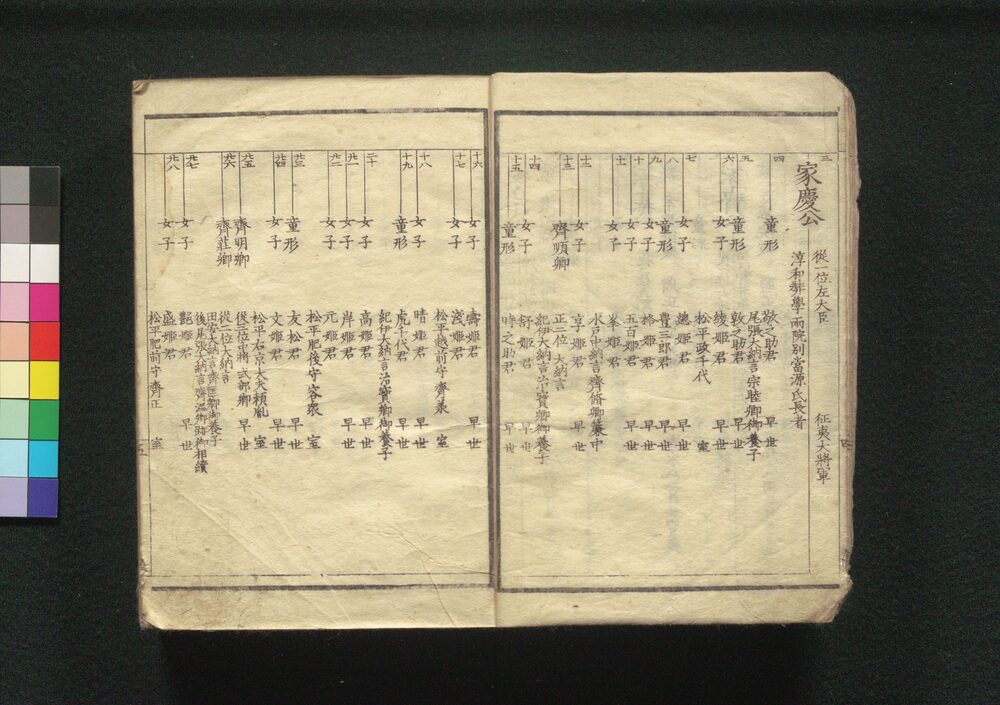 三
家慶公
從一位左大臣 征夷大將軍
淳和弉學両院別當源氏長者
四
童形 敬之助君 早世
尾張大納言宗睦卿御養子
五
童形 敦之助君 早世
六
女子 綾姫君 早世
松平政千代 室
七
女子 總姫君 早世
八
童形 豊三郎君 早世
九
女子 格姫君 早世
十
女子 五百姫君 早世
十一
女子 峯姫君
水戸中納言齊脩卿簾中
十二
女子 亨子君 早世
十三
齊順卿 正二位大納言
紀伊大納言治寶卿御養子
十四
女子 舒姫君 早世
十五
童形 時之助君 早世
十六
女子 壽姫君 早世
十七
女子 淺姫君
松平越前守齊承 室
十八
女子 晴姫君 早世
十九
童形 虎千代君 早世
紀伊大納言治寶卿御養子
二十
女子 高姫君 早世
廿一
女子 岸姫君 早世
廿二
女子 元姫君
松平肥後守容衆 室
廿三
童形 友松君 早世
廿四
女子 文姫君 早世
松平右京大夫頼胤 室
廿五
齊明卿 從三位中將式部卿 早世
廿六
齊荘卿 從二位大納言
田安大納言齊匡卿御養子
後尾張大納言齊温卿御相續
廿七
女子 艶姫君 早世
廿八
女子 盛姫君
松平肥前守齊正 室